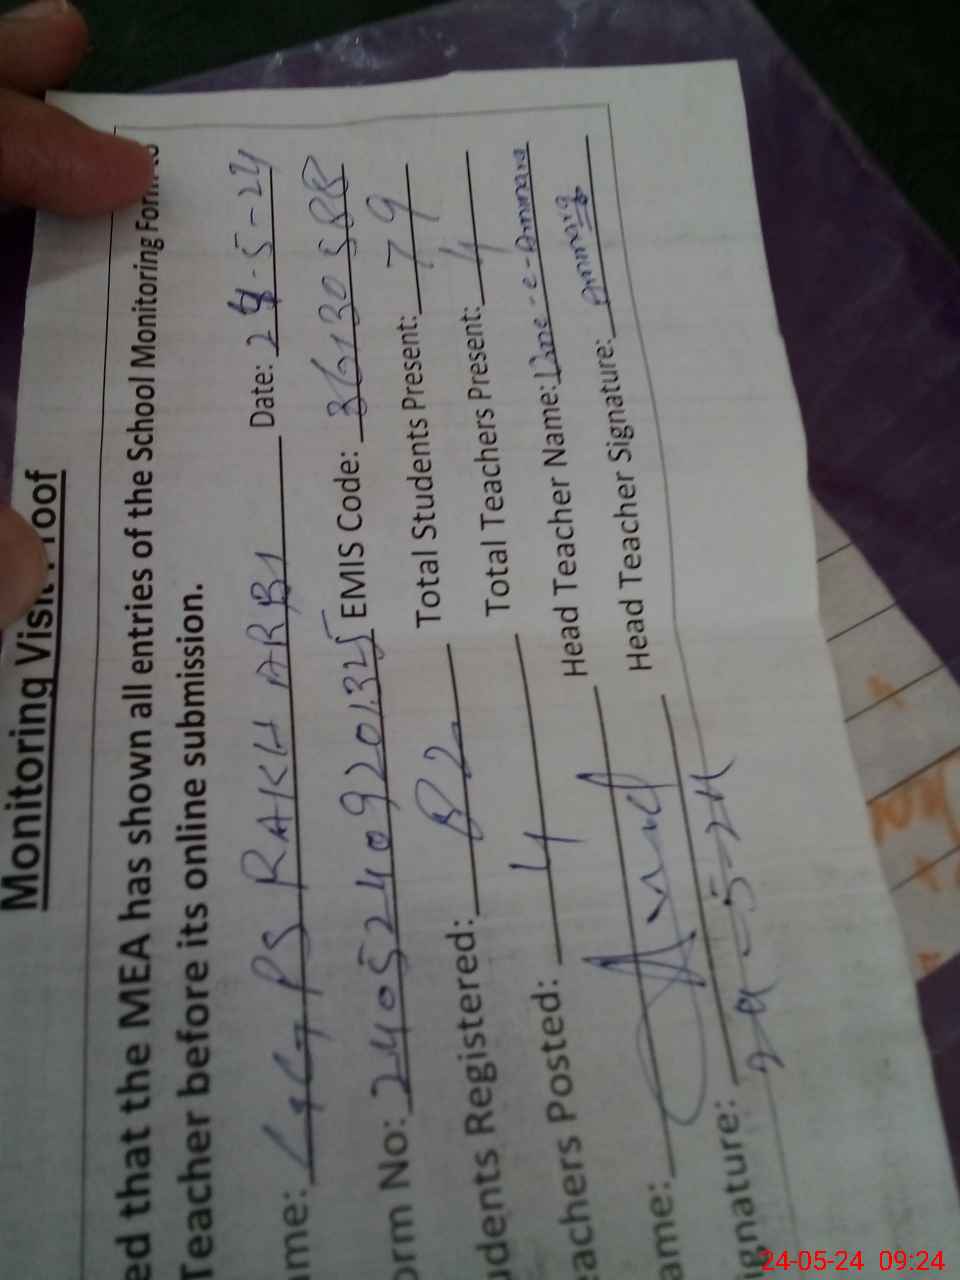 Monitoring Visit Proof
ed that the MEA has shown all entries of the School Monitoring Form to
Teacher before its online submission.
ame: GGPS RAKH ARBI Date: 24-5-24
orm No: 24052409201325 EMIS Code: 36130588
udents Registered: 82 Total Students Present: 79
eachers Posted: 4 Total Teachers Present: 4
ame: Head Teacher Name: -e-Ammara
ignature: Head Teacher Signature: Ammara
24-5-24
24-05-24 09:24